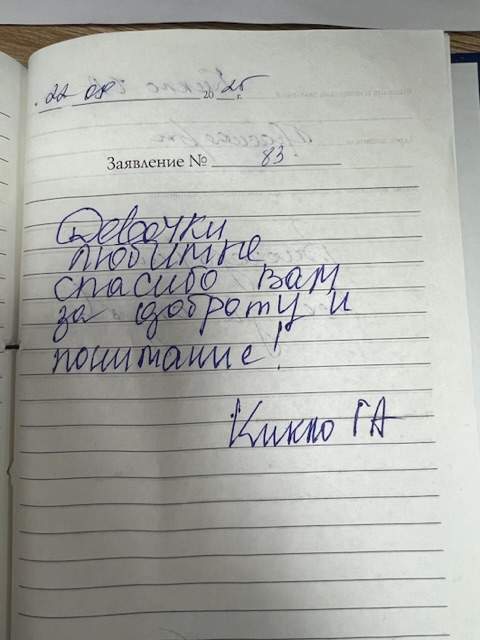 22 08 2025 г.
Заявление № 83
Девочки
любимые
спасибо вам
за доброту и
понимание!
Кикло ГА